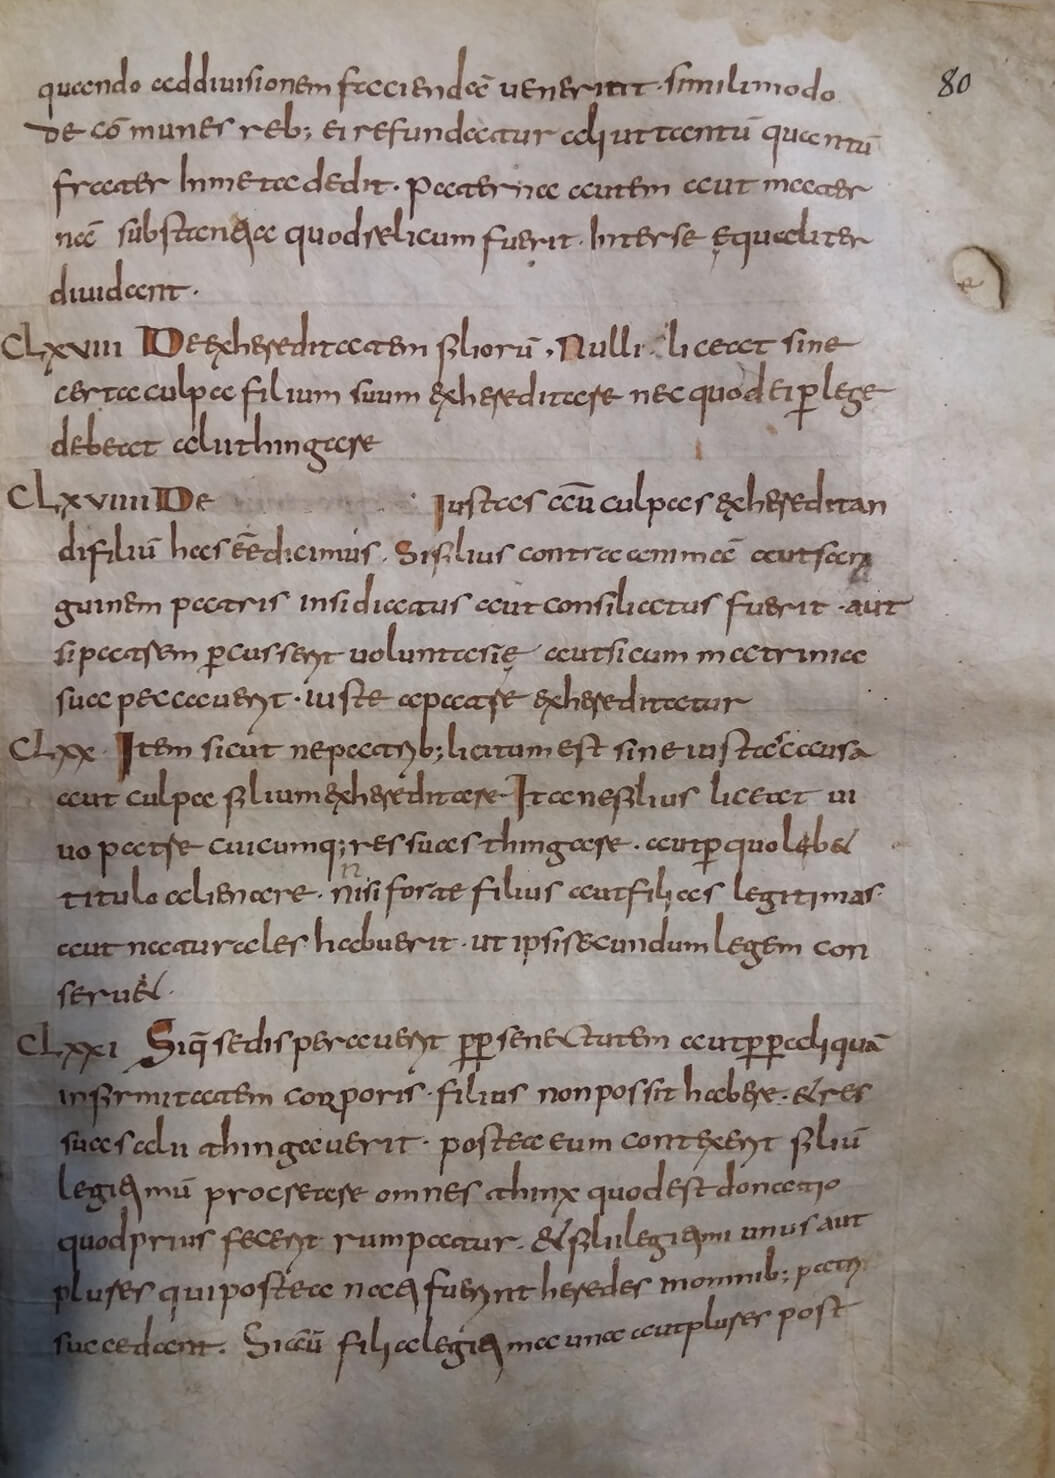 80
quando addiuisionem faciendā uenerint · similimodo
de cōmunes reb; ei refundatur alii ut tantū quantū
frater In meta dedit · paterna autem aut mater
nā substantia quod relicum fuerit · Inter se equaliter
diuidant ·
CLXVIII De exhereditatem filiorū · Nulli liceat sine
certa culpa filium suum exhereditare nec quod ei ꝑ lege
debeat aliuthingare
CLXVIIII De Iustas aū culpas exhereditan
di filiū has eē dicimus · Si filius contra animā aut san
guinem patris insidiatus aut consiliatus fuerit · aut
si patrem ꝑcusserit uoluntarię aut si cum matrinia
sua peccauerit · iuste apatre exhereditatur
CLXX Item sicut nepatrib; licitum est sine iusta causa
aut culpa filium exhereditare Ita ne filius liceat ui
uo patre cuicumq; res suas thingare · aut ꝑ quolibet
titulo alienare · nisi forte filius aut filias legitimas
aut naturales habuerit · ut ipsi secundum legem con
seruet ·
CLXXI Siq̄ se disperauerit ꝓꝑ senectutem aut ꝓꝑ aliquā
infirmitatem corporis · filius non possit habere · et res
suas alii thingauerit · postea eum contexerit filiū
legitimū procreare omnes thinx quod est donatio
quod prius fecerit rumpatur · et filii legitimi unus aut
plures qui postea nati fuerint heredes Inomnib; patri
succedant · Si aū filia legitima una aut plures post